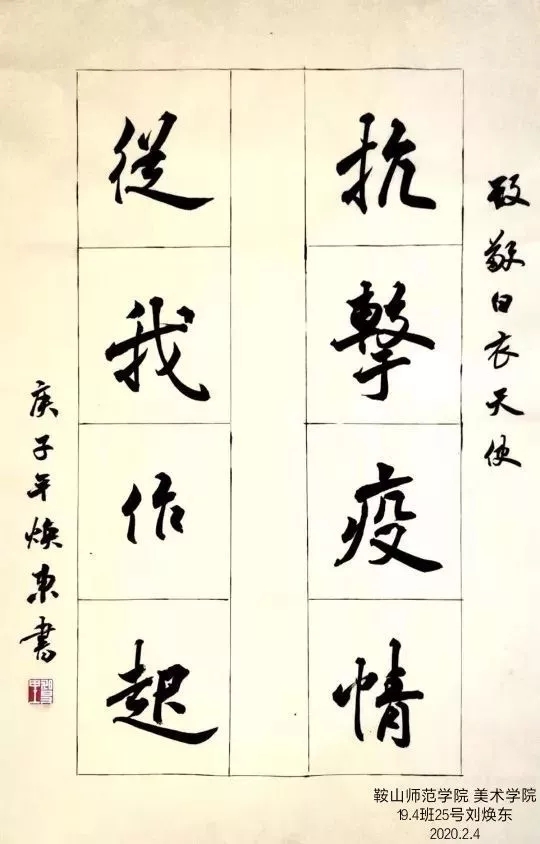 致敬白衣天使
抗擊疫情
從我作起
庚子年煥東書
鞍山师范学院 美术学院
19.4班25号刘焕东
2020.2.4